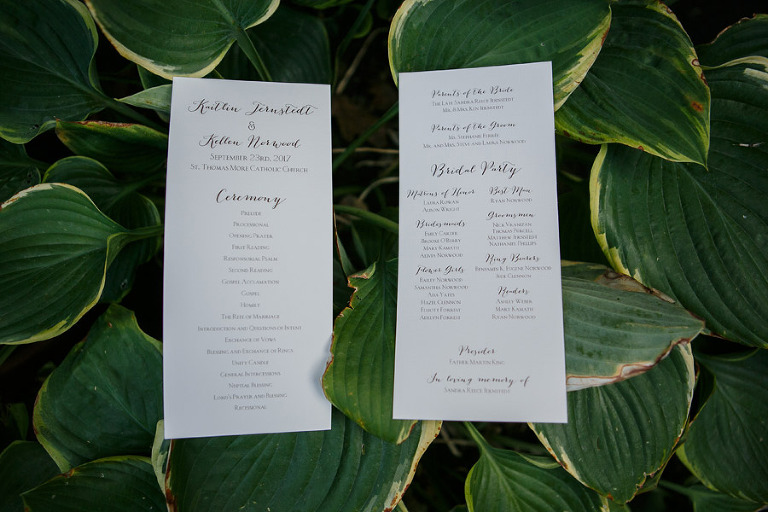 Kaitlin Jernstedt
&
Kellen Norwood
September 23rd, 2017
St. Thomas More Catholic Church
Ceremony
Prelude
Processional
Opening Prayer
First Reading
Responsorial Psalm
Second Reading
Gospel Acclamation
Gospel
Homily
The Rite of Marriage
Introduction and Questions of Intent
Exchange of Vows
Blessing and Exchange of Rings
Unity Candle
General Intercessions
Nuptial Blessing
Lord's Prayer and Blessing
Recessional
Parents of the Bride
The Late Sandra Reece Jernstedt
Mr. John Ken Jernstedt
Parents of the Groom
Ms. Stephanie
Mr. and Mrs. Steve and Laura Norwood
Bridal Party
Matrons of Honor
Laura Rowan
Alison Wright
Bridesmaids
Emily Carter
Brooke O'Berry
Mary Kamath
Alexis Norwood
Flower Girls
Emily Norwood
Samantha Norwood
Ava Yates
Hazel Clinnon
Elliott Forrest
Arleth Forrest
Best Man
Ryan Norwood
Groomsmen
Nick
Thomas
Matthew
Nathaniel Phillips
Ring Bearers
Benjamin & Eugene Norwood
Sam Clinnon
Readers
Ashley Weber
Mary Kamath
Ryan Norwood
Presider
Father Martin King
In loving memory of
Sandra Reece Jernstedt